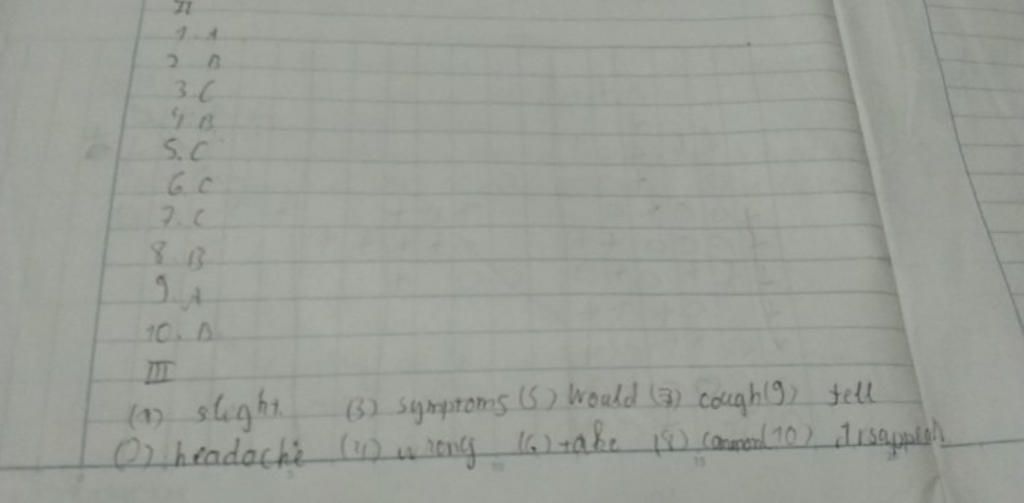 II
1. A
2 B
3. C
4 B
5. C
6. C
7. C
8. B
9. A
10.
III
(1) slight (3) symptoms (5) Would (7) cough (9) tell
(2) headache (4) wrong (6) take (8) common (10)